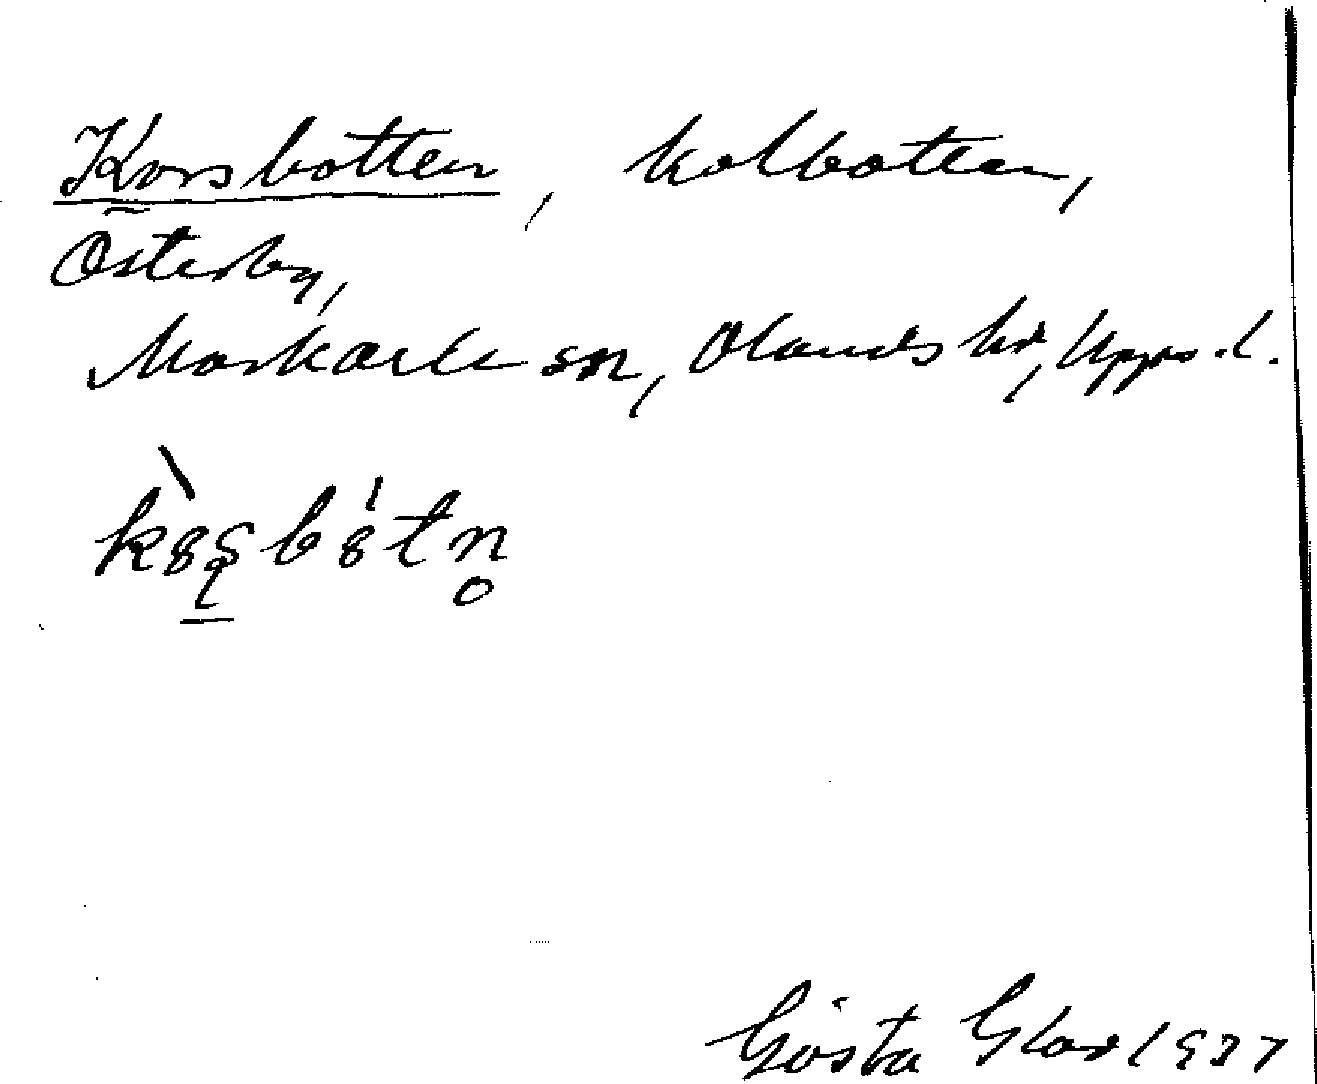 Korsbotten, kolbotten,
Österby,
Morkarla sn, Olands hd, Upps. l.
Gösta 1937